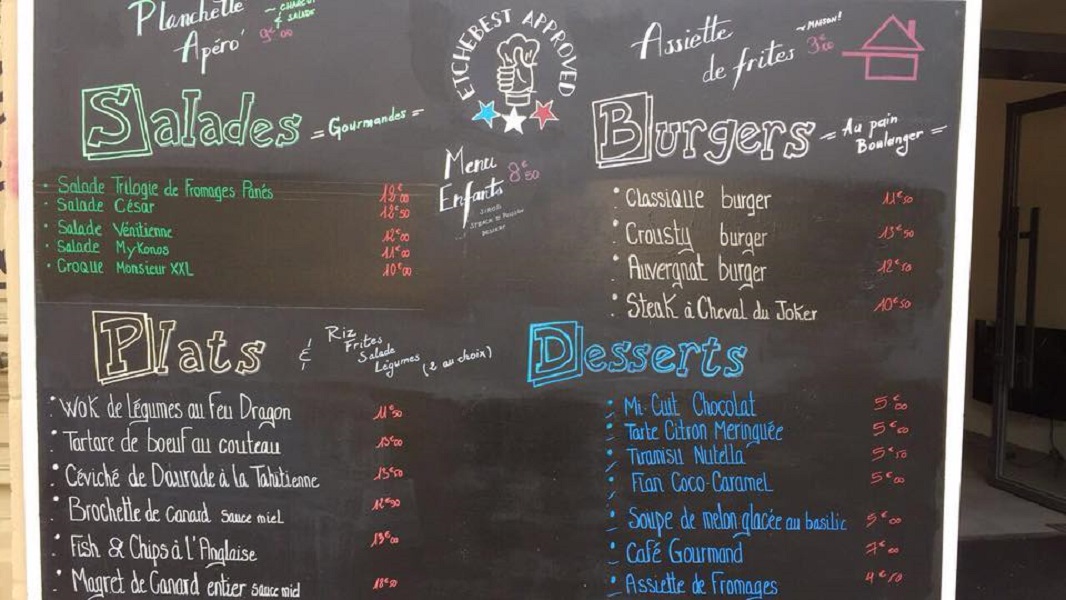 Planchette
Apéro'
~ CHARCUT
& SALADE
9€00
ETCHEBEST APPROVED
Assiette
de frites
~ MAISON!
3€00
Salades = Gourmandes =
• Salade Trilogie de Fromages Panés 12€00
• Salade César 12€50
• Salade Vénitienne 12€00
• Salade Mykonos 11€00
• Croque Monsieur XXL 10€00
Menu
Enfants
8€50
SIROP
DESSERT
Burgers = Au pain
Boulanger =
• Classique burger 11€50
• Crousty burger 13€50
• Auvergnat burger 12€50
• Steak à Cheval du Joker 10€50
Plats
& Riz
Frites
Salade
Légumes (2 au choix)
• Wok de légumes au Feu Dragon 11€50
• Tartare de boeuf au couteau 15€00
• Céviché de Daurade à la Tahitienne 13€50
• Brochette de Canard sauce miel 12€50
• Fish & Chips à l'Anglaise 13€00
• Magret de Canard entier sauce miel 18€50
Desserts
• Mi-Cuit Chocolat 5€00
• Tarte Citron Meringuée 5€00
• Tiramisu Nutella 5€50
• Flan Coco-Caramel 5€00
• Soupe de melon glacée au basilic 5€00
• Café Gourmand 7€00
• Assiette de Fromages 4€50